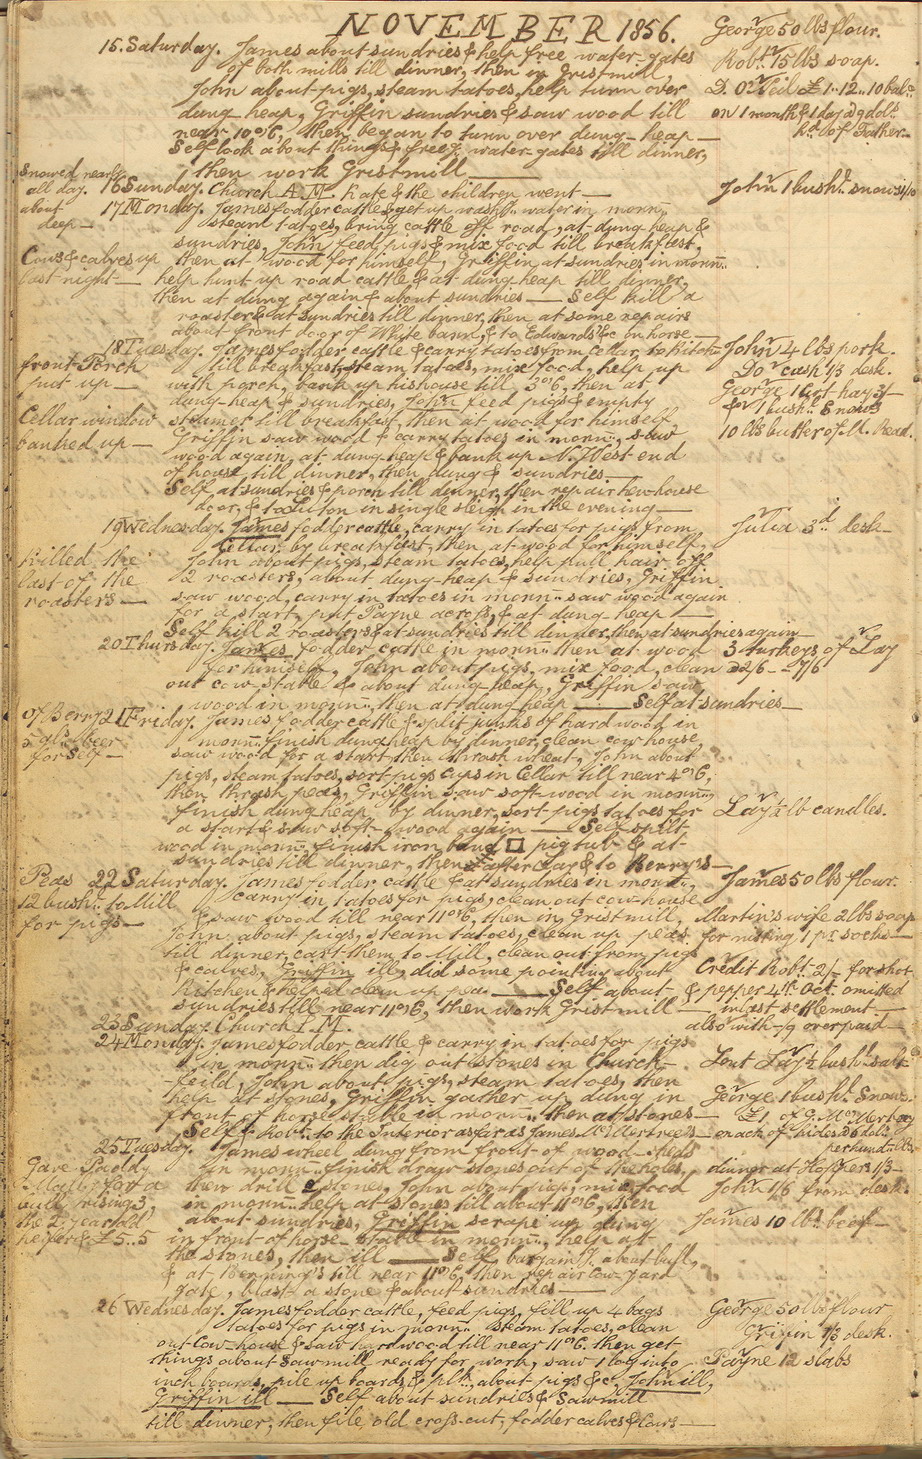 NOVEMBER 1856.
George 50 lbs flour.
15. Saturday. James about sundries & help free water-gates
of both mills till dinner, then in Gristmill,
Robt. 15 lbs soap.
John about pigs, steam tatoes, help turn over
dung heap, Griffin sundries & saw wood till
on 1 month & 1 day
near 10 o'6, then began to turn over dung-heap —
of Father —
Self look about things & free water-gates till dinner,
then work Gristmill —
Snowed nearly
all day.
about
deep —
16 Sunday. Church A.M. Kate & the children went —
John 1 bushl.
17 Monday. James fodder cattle & get up water in mornn.,
steam tatoes, bring cattle off road, at dung-heap &
sundries, John feed pigs & mix food till breakfast,
Cows & calves up
last night —
then at wood for himself, Griffin at sundries in mornn.
help hunt up road cattle & at dung-heap till dinner,
then at dung again & about sundries — Self kill a
roaster & at sundries till dinner, then at some repairs
about front door of White barn, & to Edwards' &c on horse —
18 Tuesday. James fodder cattle & carry tatoes from Cellar to Kitchn
John 4 lbs pork.
till breakfast, steam tatoes, mix food, help up
Do. cash 1/3 desk.
front Porch
put up —
with porch, bank up his house till 3 o'6, then at
George 1 Cwt hay 3/-
dung-heap & sundries, John feed pigs & empty
for 1 bushl.
Cellar window
banked up —
steamer till breakfast, then at wood for himself
Griffin saw wood & carry tatoes in mornn., saw
10 lbs butter of M. Read.
wood again, at dung-heap & bank up N. West end
of house till dinner, then dung & sundries —
Self, at sundries & porch till dinner, then repair hewhouse
door, & to Luton in single sleigh in the evening —
19 Wednesday. James fodder cattle, carry in tatoes for pigs from
Julia 3d. desk —
Cellar by breakfast, then at wood for himself,
Killed the
last of the
roasters —
John about pigs, steam tatoes, help pull hair off
2 roasters, about dung-heap & sundries, Griffin
saw wood, carry in tatoes in mornn. saw wood again
for a start, put Payne across, & at dung heap —
Self kill 2 roasters & at sundries till dinner, then at sundries again —
20 Thursday. James fodder cattle in mornn. then at wood
3 turkeys of Lay
for himself, John about pigs, mix food, clean
2/6 — 7/6
out cow-stable & about dung-heap, Griffin saw
wood in mornn., then at dung heap — Self at sundries —
Of Berry
5 gls. beer
for Self —
21 Friday. James fodder cattle & split junks of hard wood in
mornn. finish dung heap by dinner, clean cow house,
saw wood for a start, then thrash wheat, John about
pigs, steam tatoes, sort pigs cups in Cellar till near 4 o'6,
then thrash peas, Griffin saw soft-wood in mornn.,
finish dung heap by dinner, sort pigs tatoes for
Lay ½ lb candles.
a start & saw soft-wood again — Self split
wood in mornn., finish iron band □ pig tub & at
sundries till dinner, then & to Berry's —
Peas
12 bushl. to Mill
for pigs —
22 Saturday. James fodder cattle & at sundries in mornn.,
James 50 lbs flour.
carry in tatoes for pigs, clean out cow-house
& saw wood till near 11 o'6, then in Gristmill,
Martin's wife 2 lbs soap
John about pigs, steam tatoes, clean up peas
for nitting 1 pr. socks —
till dinner, cart them to Mill, clean out from pigs
& calves, Griffin ill, did some pointing about
Credit Robt. 2/- for shot
Kitchen & helped clean up peas — Self about
& pepper 4th Oct. omitted
sundries till near 11 o'6, then work Gristmill —
in last settlement —
23 Sunday. Church P.M.
also with -/9 overpaid —
24 Monday. James fodder cattle & carry in tatoes for pigs
in mornn. then dig out stones in Church-
Lent Lay ½ bushl. salt
feild, John about pigs, steam tatoes, then
help at stones, Griffin gather up dung in
George 1 bushl.
front of horse stable in mornn. then at stones —
£1 of G. McMertrey
Self & Robt. to the Interior as far as James McMertree's —
on ack. of hides
25 Tuesday. James wheel dung from front of wood-sheds
per hund. lbs
Gave Paddy
in mornn. finish draw stones out of the holes,
dinner at Hoffers 1/3 —
for a
then drill 2 stones, John about pigs, mix food
John 1/6 from desk.
bull rising 3,
in mornn. help at stones till about 11 o'6, then
the 2 year old
about sundries, Griffin scrape up dung
James 10 lbs. beef —
heifer & £5..5
in front of horse-stable in mornn., help at
the stones, then ill — Self, bargaing. about bull,
& at Benning's till near 11 o'6, then repair cow-yard
gate, blast a stone & about sundries —
26 Wednesday. James fodder cattle, feed pigs, fill up 4 bags
George 50 lbs flour
tatoes for pigs in mornn. steam tatoes, clean
Griffin 1/3 desk.
out cow-house & saw hardwood till near 11 o'6. then get
things about Sawmill ready for work, saw 1 log into
Payne 12 slabs
inch boards, pile up boards & plk., about pigs &c, John ill,
Griffin ill — Self about sundries & Sawmill
till dinner, then file old cross-cut, fodder calves & Cows —